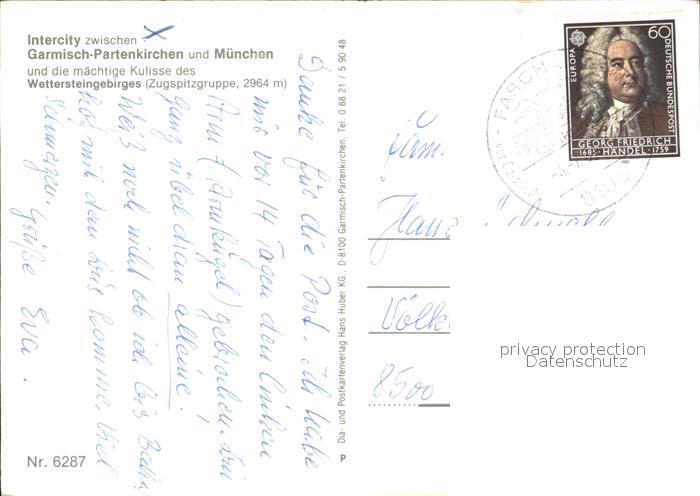 Intercity zwischen X
Garmisch-Partenkirchen und München
und die mächtige Kulisse des
Wettersteingebirges (Zugspitzgruppe, 2964 m)
Danke für die Post. Ich habe
mir vor 14 Tagen den linken
Arm (Armkugel) gebrochen. Bin
ganz übel dran alleine!
Weiß noch nicht ob ich bis
hof mit dem Bus komme. Viel
Grüße Eva.
Nr. 6287
Dia- und Postkartenverlag Hans Huber KG., D-8100 Garmisch-Partenkirchen, Tel. 0 88 21 / 5 90 48
P
EUROPA
60
DEUTSCHE BUNDESPOST
GEORG FRIEDRICH
1685 HÄNDEL 1759
1985
FARCH
8105
Fam.
Hans
Völk
8500
privacy protection
Datenschutz